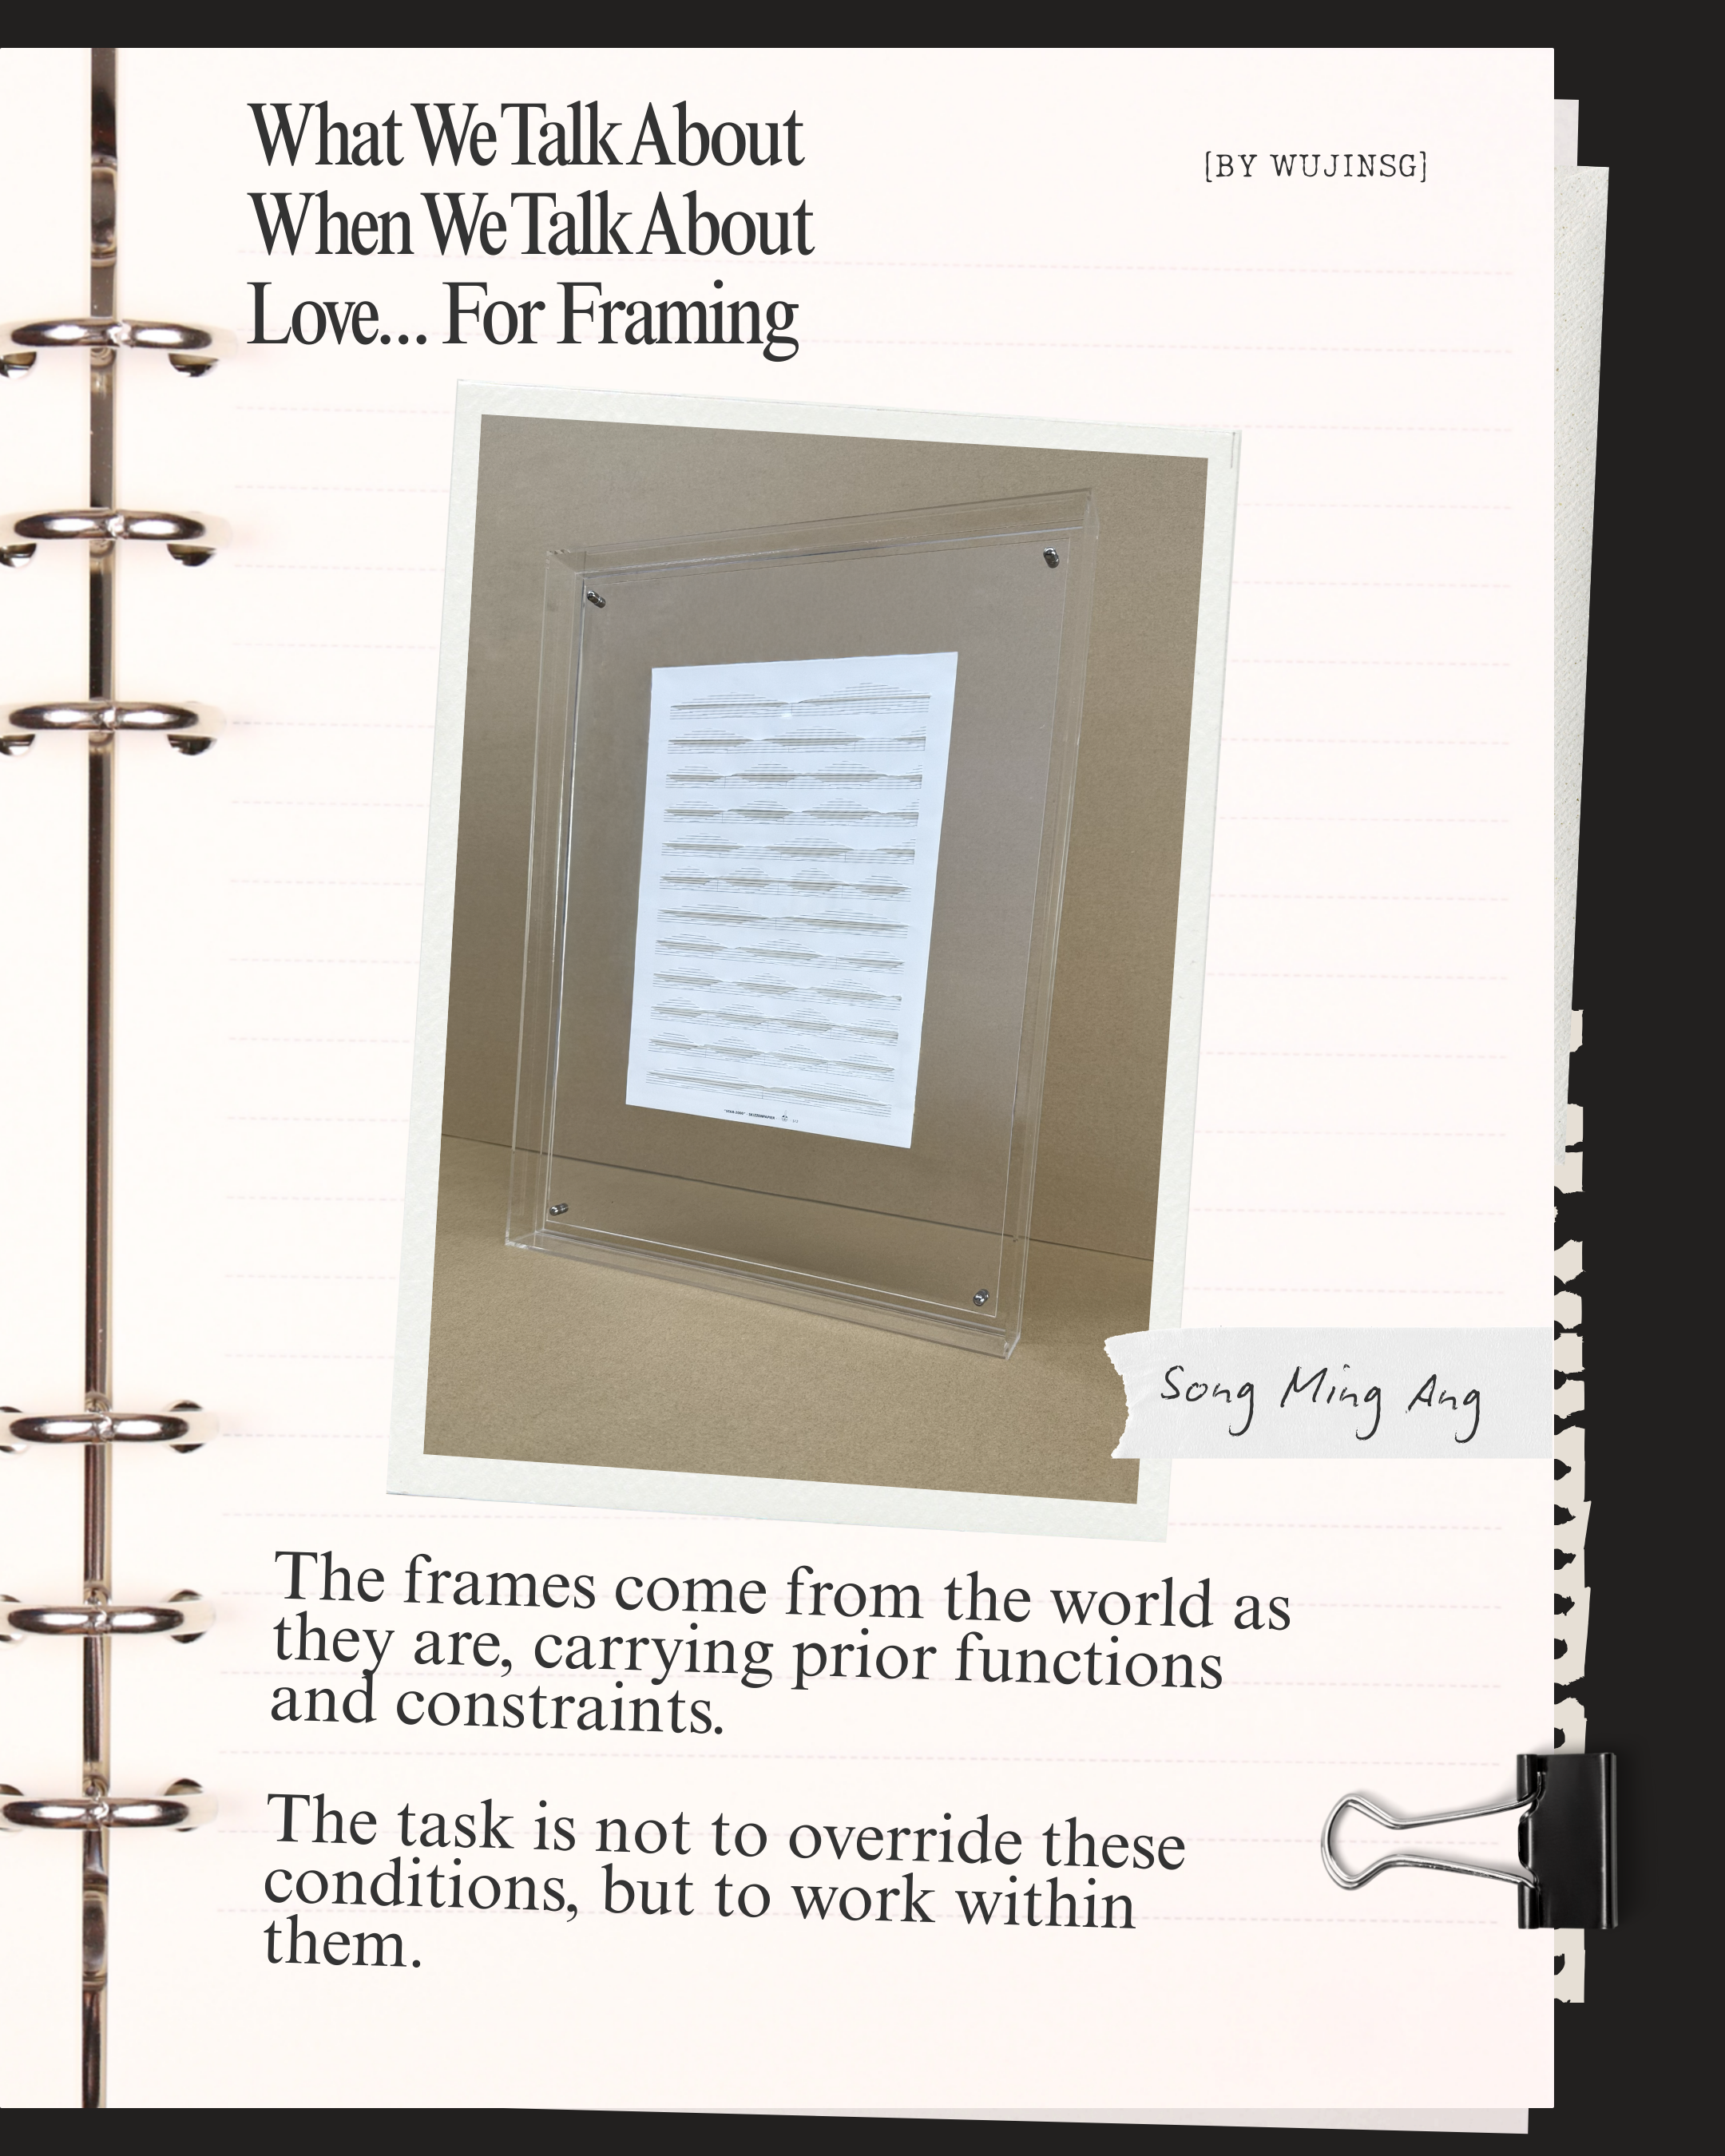 What We Talk About
When We Talk About
Love... For Framing
[BY WUJINSG]
Song Ming Ang
The frames come from the world as
they are, carrying prior functions
and constraints.
The task is not to override these
conditions, but to work within
them.